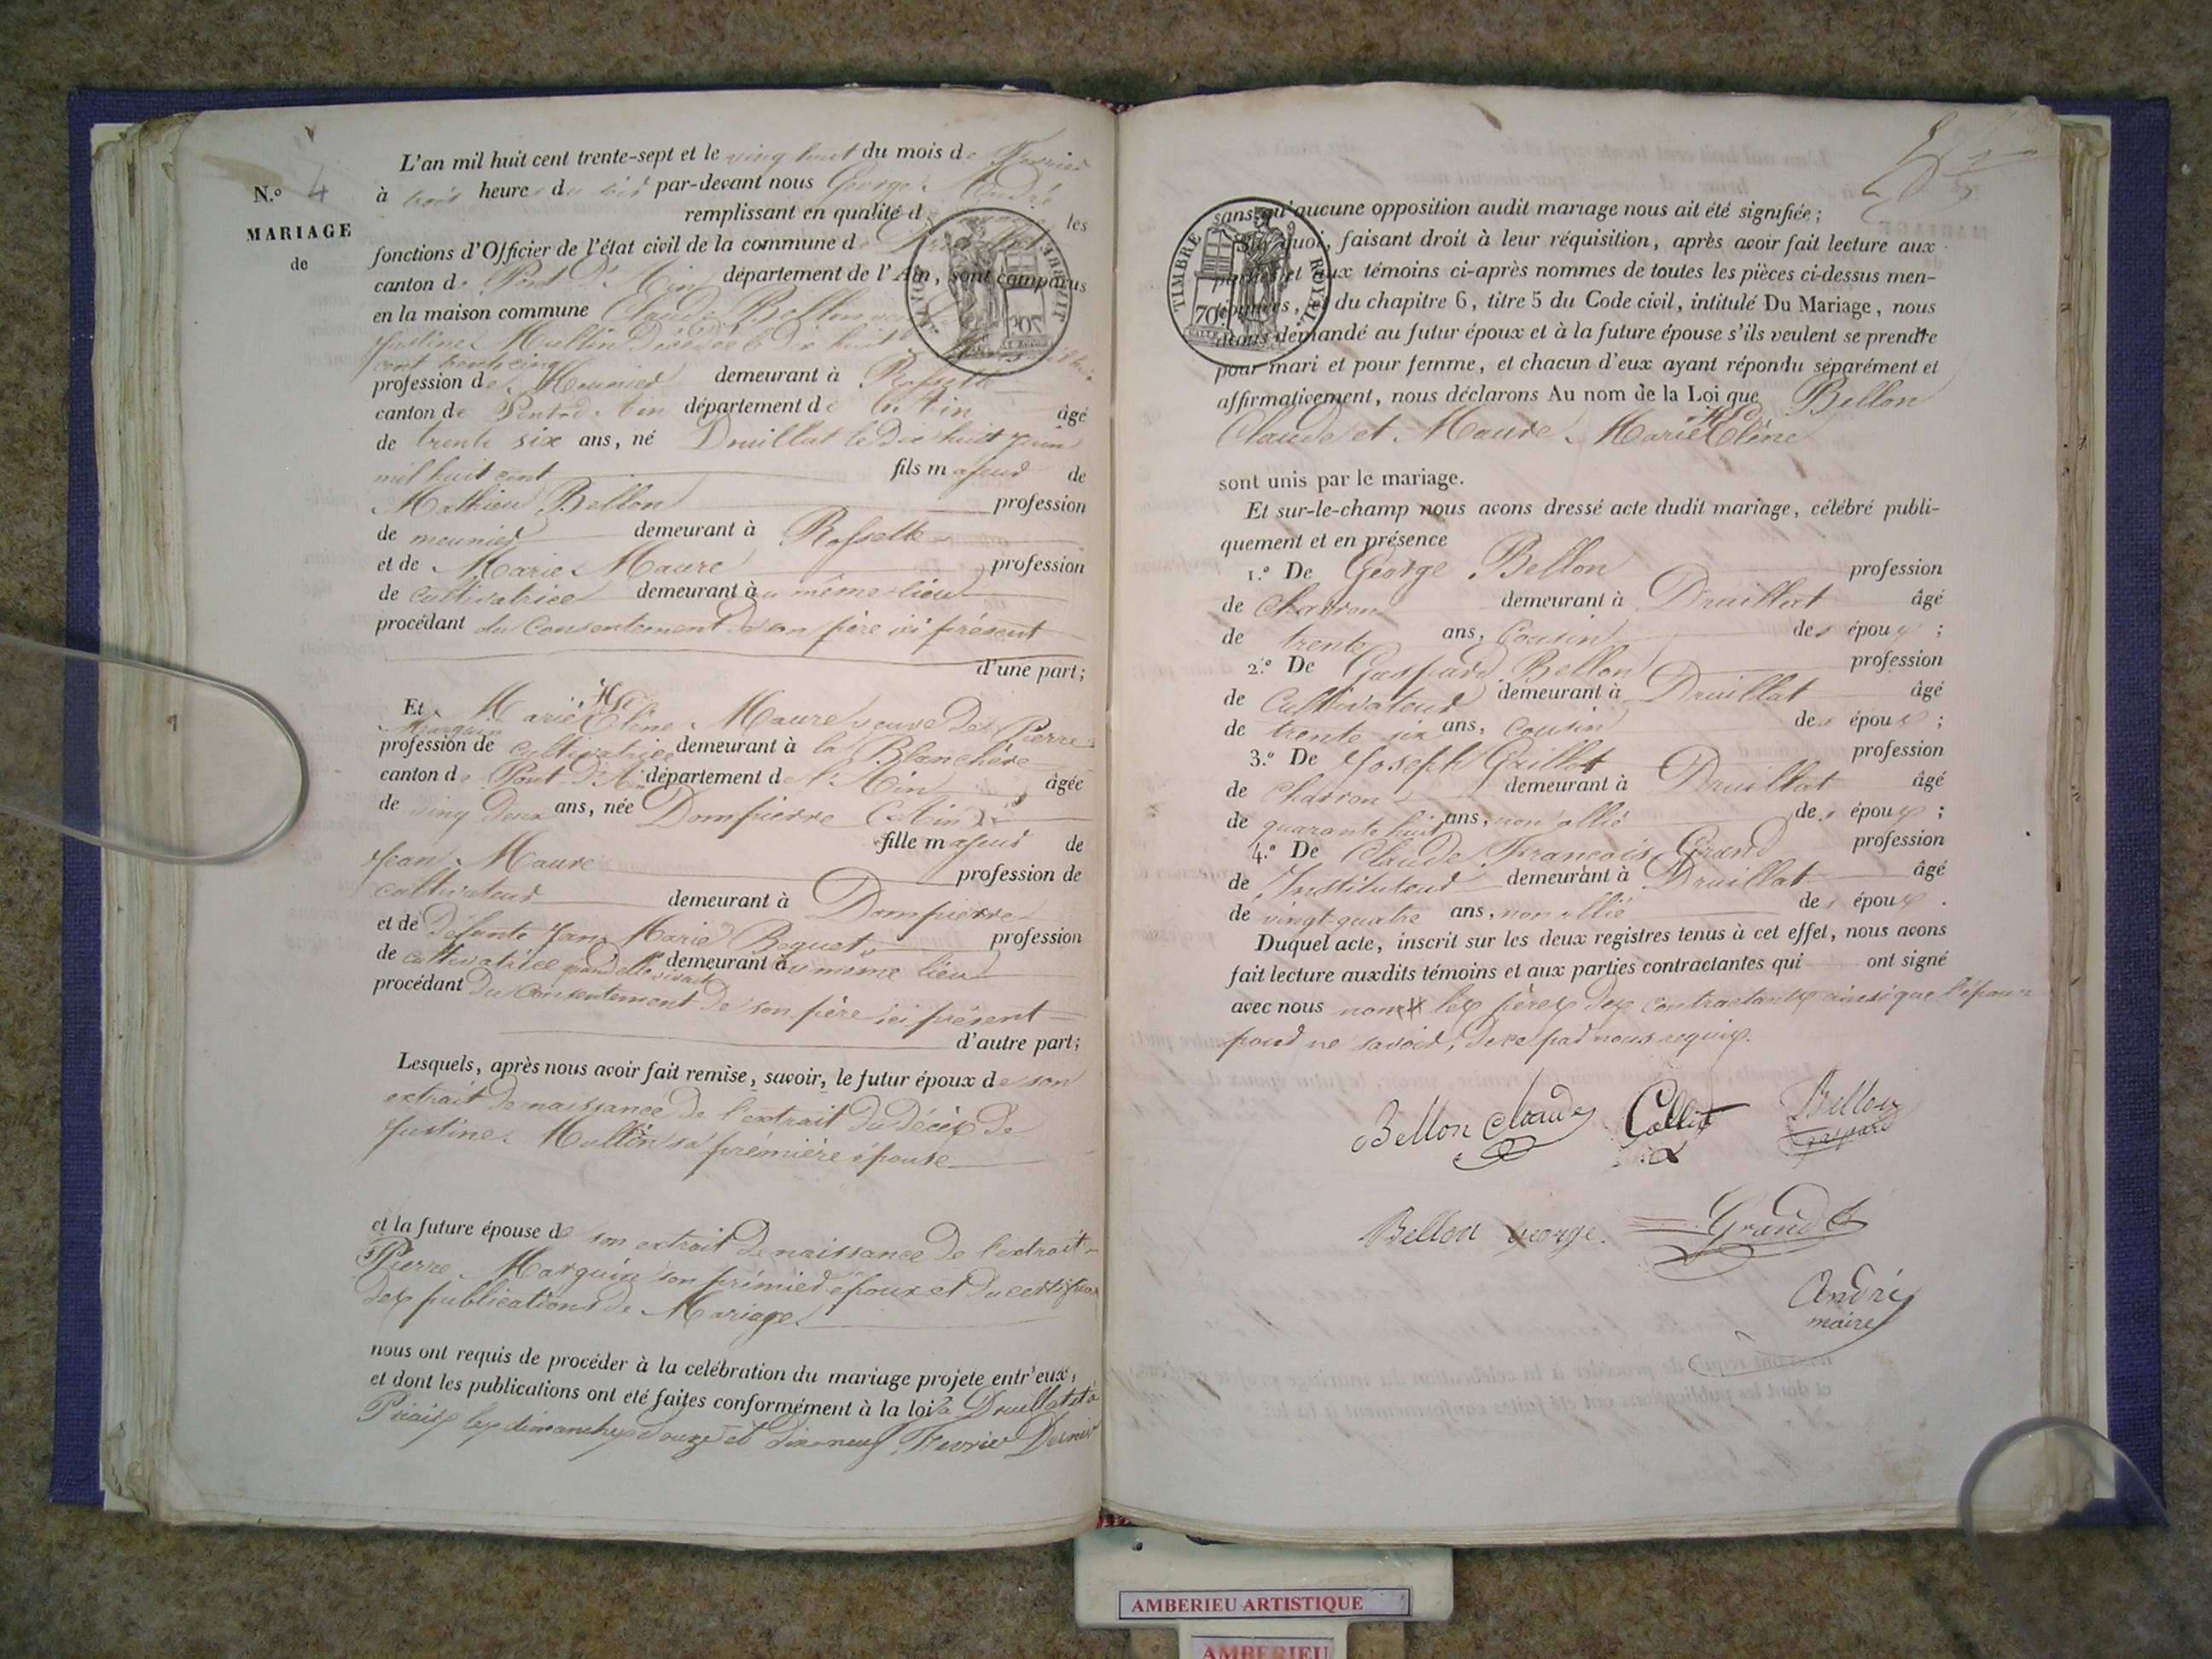 N.o 4
MARIAGE
de
L'an mil huit cent trente-sept et le ving huit du mois de Fevrier
à trois heures du soir par-devant nous George André
remplissant en qualité de les
fonctions d'Officier de l'état civil de la commune de Druillat
canton de Pont d'Ain département de l'Ain, sont comparus
en la maison commune Claude Bellon
Justine Mullin décédée le dix huit
cent trente cinq
profession de Meunier demeurant à Rossette
canton de Pont d'Ain département de l'Ain âgé
de trente six ans, né Druillat le dix huit
mil huit cent fils majeur de
Mathieu Bellon profession
de meunier demeurant à Rossette
et de Marie Maure profession
de cultivatrice demeurant à au même lieu
procédant du consentement de son père ici présent
d'une part;
Et Marie Hélène Maure veuve de Pierre
Marguin
profession de cultivatrice demeurant à la Blanchère
canton de Pont d'Ain département de l'Ain, âgée
de ving deux ans, née Dompierre (Ain)
fille majeur de
Jean Maure profession de
cultivateur demeurant à Dompierre
et de défunte Jane Marie Beguet profession
de cultivatrice quand elle vivait demeurant à au même lieu
procédant du consentement de son père ici présent
d'autre part;
Lesquels, après nous avoir fait remise, savoir, le futur époux de son
extrait de naissance de l'extrait du décès de
Justine Mullin sa première épouse
et la future épouse de son extrait de naissance de l'extrait
Pierre Marguin son premier époux et du certificat
des publications de Mariage
nous ont requis de procéder à la celébration du mariage projeté entr'eux,
et dont les publications ont été faites conformément à la loi à Druillat et à
les dimanches douze et dix neuf Fevrier Dernier
TIMBRE ROYAL
70
sans qu'aucune opposition audit mariage nous ait été signifiée;
Sur quoi, faisant droit à leur réquisition, après avoir fait lecture aux
parties et aux témoins ci-après nommés de toutes les pièces ci-dessus men-
tionnées, et du chapitre 6, titre 5 du Code civil, intitulé Du Mariage, nous
avons demandé au futur époux et à la future épouse s'ils veulent se prendre
pour mari et pour femme, et chacun d'eux ayant répondu séparément et
affirmativement, nous déclarons Au nom de la Loi que Bellon
Claude et Maure Marie Hélène
sont unis par le mariage.
Et sur-le-champ nous avons dressé acte dudit mariage, célébré publi-
quement et en présence
1.o De George Bellon profession
de Charron demeurant à Druillat âgé
de trente ans, cousin des époux;
2.o De Gaspard Bellon profession
de Cultivateur demeurant à Druillat âgé
de trente six ans, cousin des époux;
3.o De Joseph profession
de Charron demeurant à Druillat âgé
de quarante huit ans, non allié des époux;
4.o De Claude François Grand profession
de Instituteur demeurant à Druillat âgé
de vingt quatre ans, non allié des époux.
Duquel acte, inscrit sur les deux registres tenus à cet effet, nous avons
fait lecture auxdits témoins et aux parties contractantes qui ont signé
avec nous non les pères des contractants ainsi que l'épouse
pour ne savoir, de ce par nous requis.
Bellon Claude Bellon
Gaspard
Bellon george. Grand
André
maire
AMBERIEU ARTISTIQUE
AMBERIEU